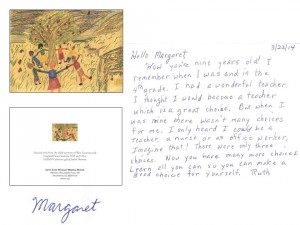 3/22/14
Hello Margaret
Wow you're nine years old! I
remember when I was and in the
4th grade. I had a wonderful teacher.
I thought I would become a teacher
which is a great choice. But when I
was nine there wasn't many choices
for me. I only heard I could be a
teacher, a nurse or an office worker.
Imagine that! There were only three
choices. Now you have many more choices
Learn all you can so you can make a
good choice for yourself. Ruth
Margaret